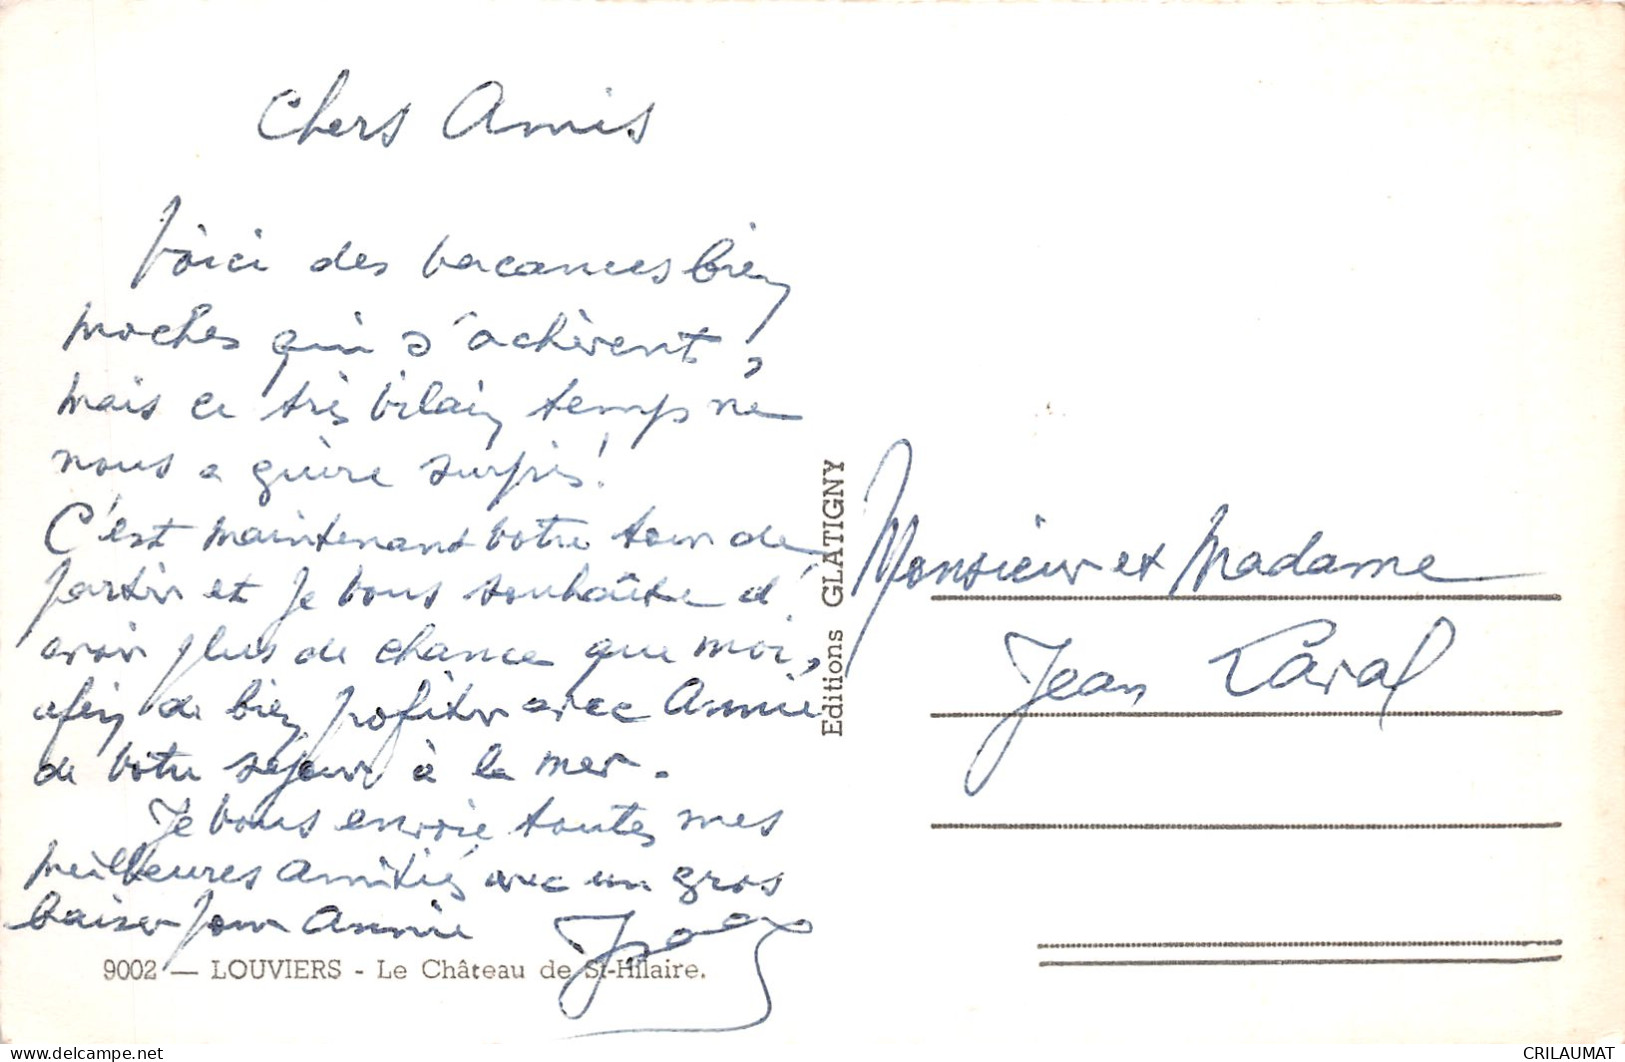 Chers Amis
Voici des vacances bien
moches qui s'achèvent,
mais ce très vilain temps ne
nous a guère surpris!
C'est maintenant votre tour de
partir et je vous souhaite d'
avoir plus de chance que moi,
afin de bien profiter avec Annie
de votre séjour à la mer.
Je vous envoie toutes mes
meilleures amitiés avec un gros
baiser pour Annie
9002 — LOUVIERS - Le Château de St-Hilaire.
Editions GLATIGNY
Monsieur et Madame
Jean Laval
CRILAUMAT